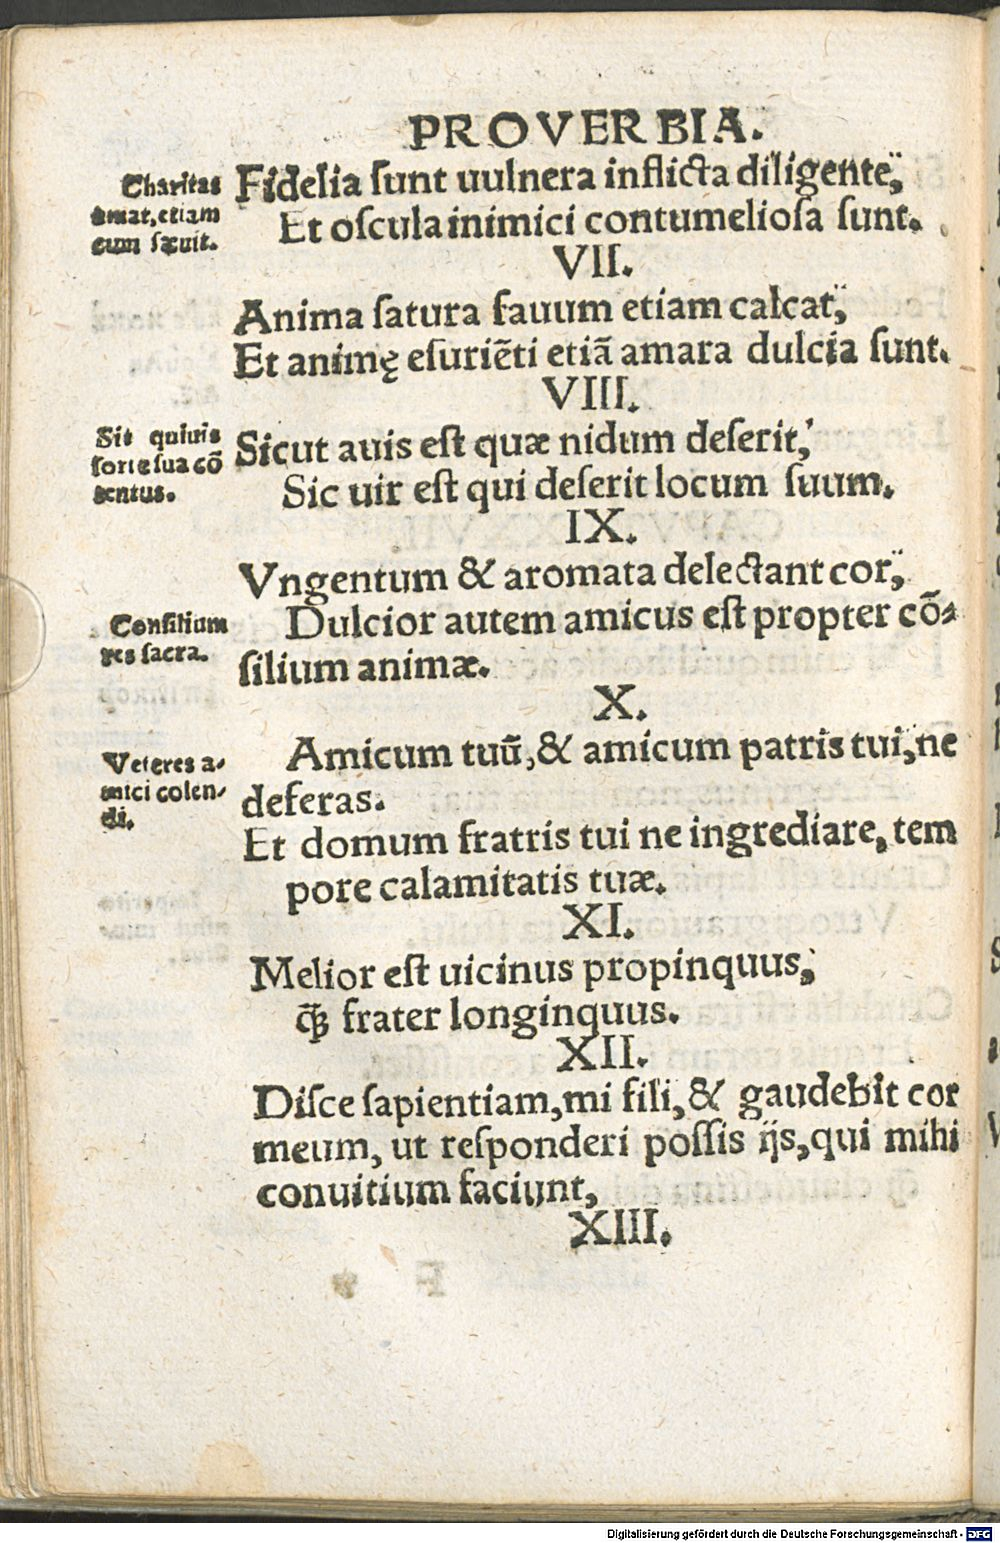 PROVERBIA.
Charitas
amat, etiam
cum sæuit.
Fidelia ſunt uulnera inflicta diligente,
Et oſcula inimici contumelioſa ſunt.
VII.
Anima ſatura fauum etiam calcat,
Et animę eſuriẽti etiã amara dulcia ſunt.
VIII.
Sit quiuis
ſorte ſua cõ
tentus.
Sicut auis eſt quæ nidum deſerit,
Sic uir eſt qui deſerit locum ſuum.
IX.
Vngentum & aromata delectant cor,
Consilium
res sacra.
Dulcior autem amicus eſt propter cõ-
ſilium animæ.
X.
Veteres a-
mici colen-
di.
Amicum tuũ, & amicum patris tui, ne
deſeras.
Et domum fratris tui ne ingrediare, tem
pore calamitatis tuæ.
XI.
Melior eſt uicinus propinquus,
ꝗ̃ frater longinquus.
XII.
Diſce ſapientiam, mi fili, & gaudebit cor
meum, ut reſponderi poſſis ijs, qui mihi
conuitium faciunt,
XIII.
Digitalisierung gefördert durch die Deutsche Forschungsgemeinschaft - DFG